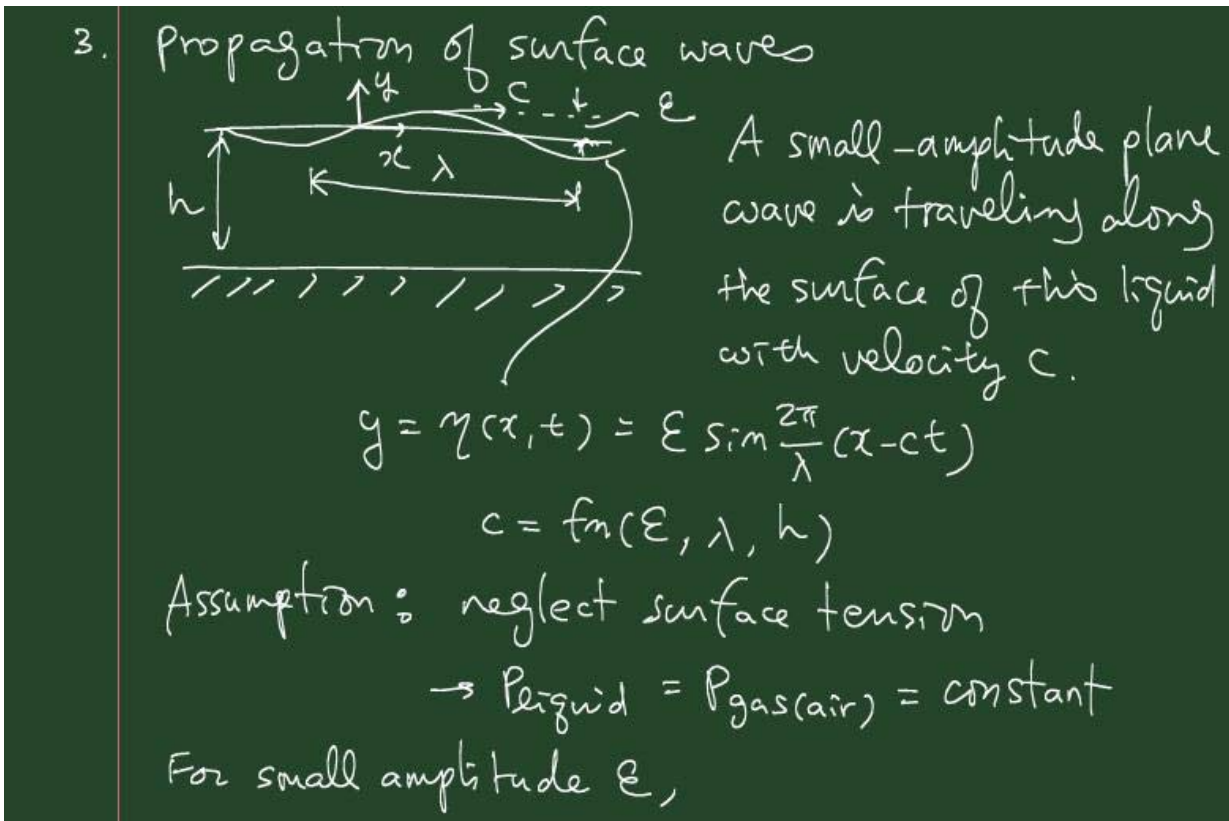 3. Propagation of surface waves
y
c
ε
x
λ
h
A small-amplitude plane
wave is traveling along
the surface of this liquid
with velocity c.
y = η(x,t) = ε sin 2π/λ (x-ct)
c = fn(ε, λ, h)
Assumption : neglect surface tension
→ Pliquid = Pgas(air) = constant
For small amplitude ε,